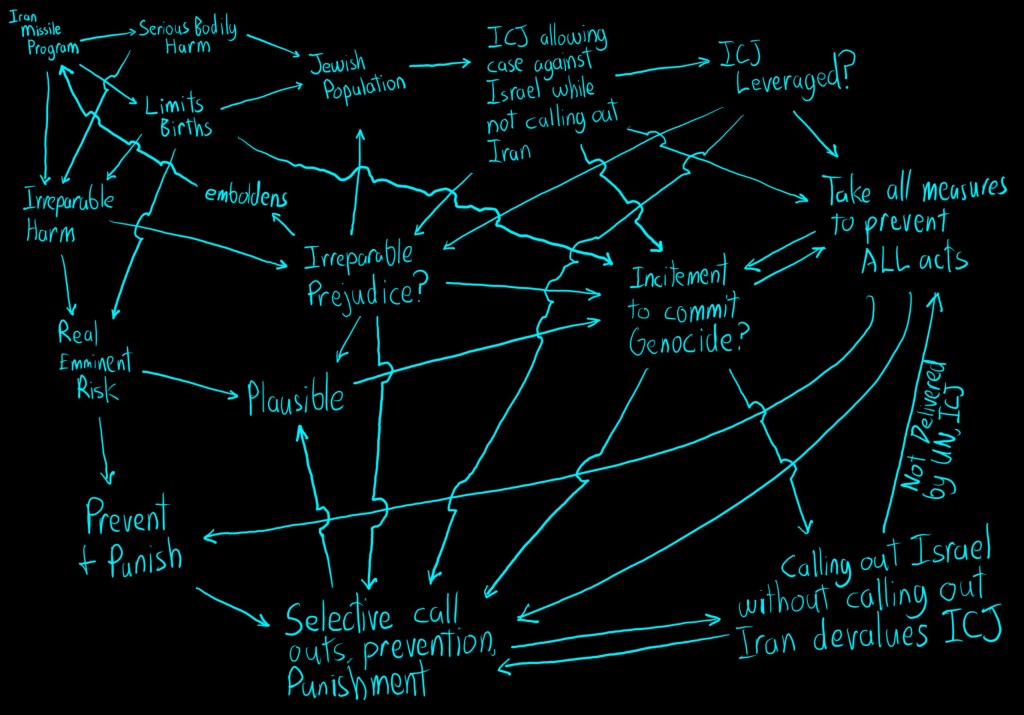 Iran
Missile
Program
Serious Bodily
Harm
Limits
Births
Jewish
Population
ICJ allowing
case against
Israel while
not calling out
Iran
ICJ
Leveraged?
Irreparable
Harm
emboldens
Irreparable
Prejudice?
Incitement
to commit
Genocide?
Take all measures
to prevent
ALL acts
Real
Emminent
Risk
Plausible
Not Delivered
by UN, ICJ
Prevent
+ Punish
Selective call
outs, prevention,
Punishment
Calling out Israel
without calling out
Iran devalues ICJ